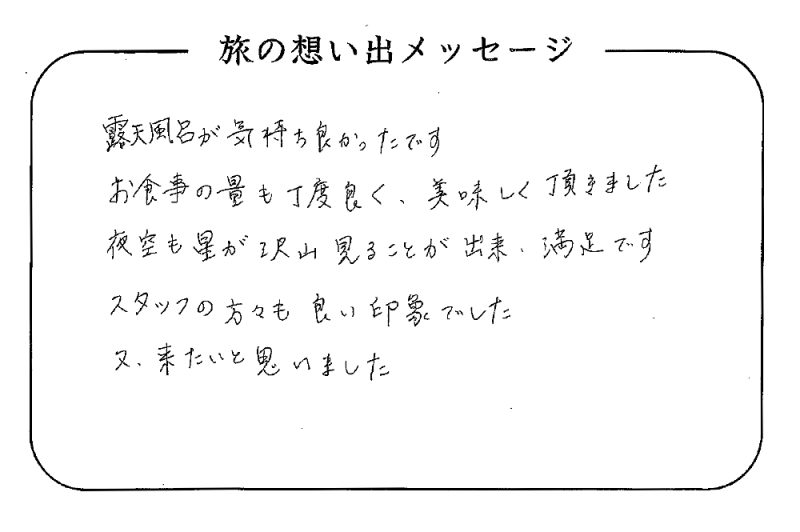 旅の想い出メッセージ
露天風呂が気持ち良かったです
お食事の量も丁度良く、美味しく頂きました
夜空も星が沢山見ることが出来、満足です
スタッフの方々も良い印象でした
又、来たいと思いました